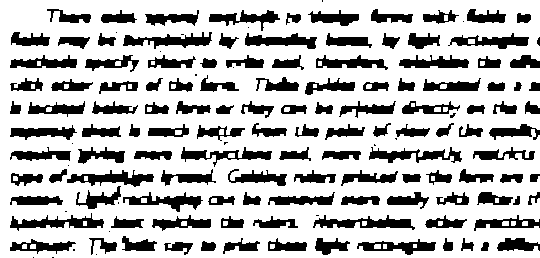 There exist several methods to design forms with fields to
fields may be surrounded by bounding boxes, by light rectangles o
methods specify where to write and, therefore, minimize the effec
with other parts of the form. These guides can be located on a s
is located below the form or they can be printed directly on the fo
separate sheet is much better from the point of view of the quality
requires giving more instructions and, more importantly, restricts
type of acquisition is used. Guiding rulers printed on the form are
reason. Light rectangles can be removed more easily with filters th
handwritten text touches the rulers. Nevertheless, other practice
account: The best way to print these light rectangles is in a differe